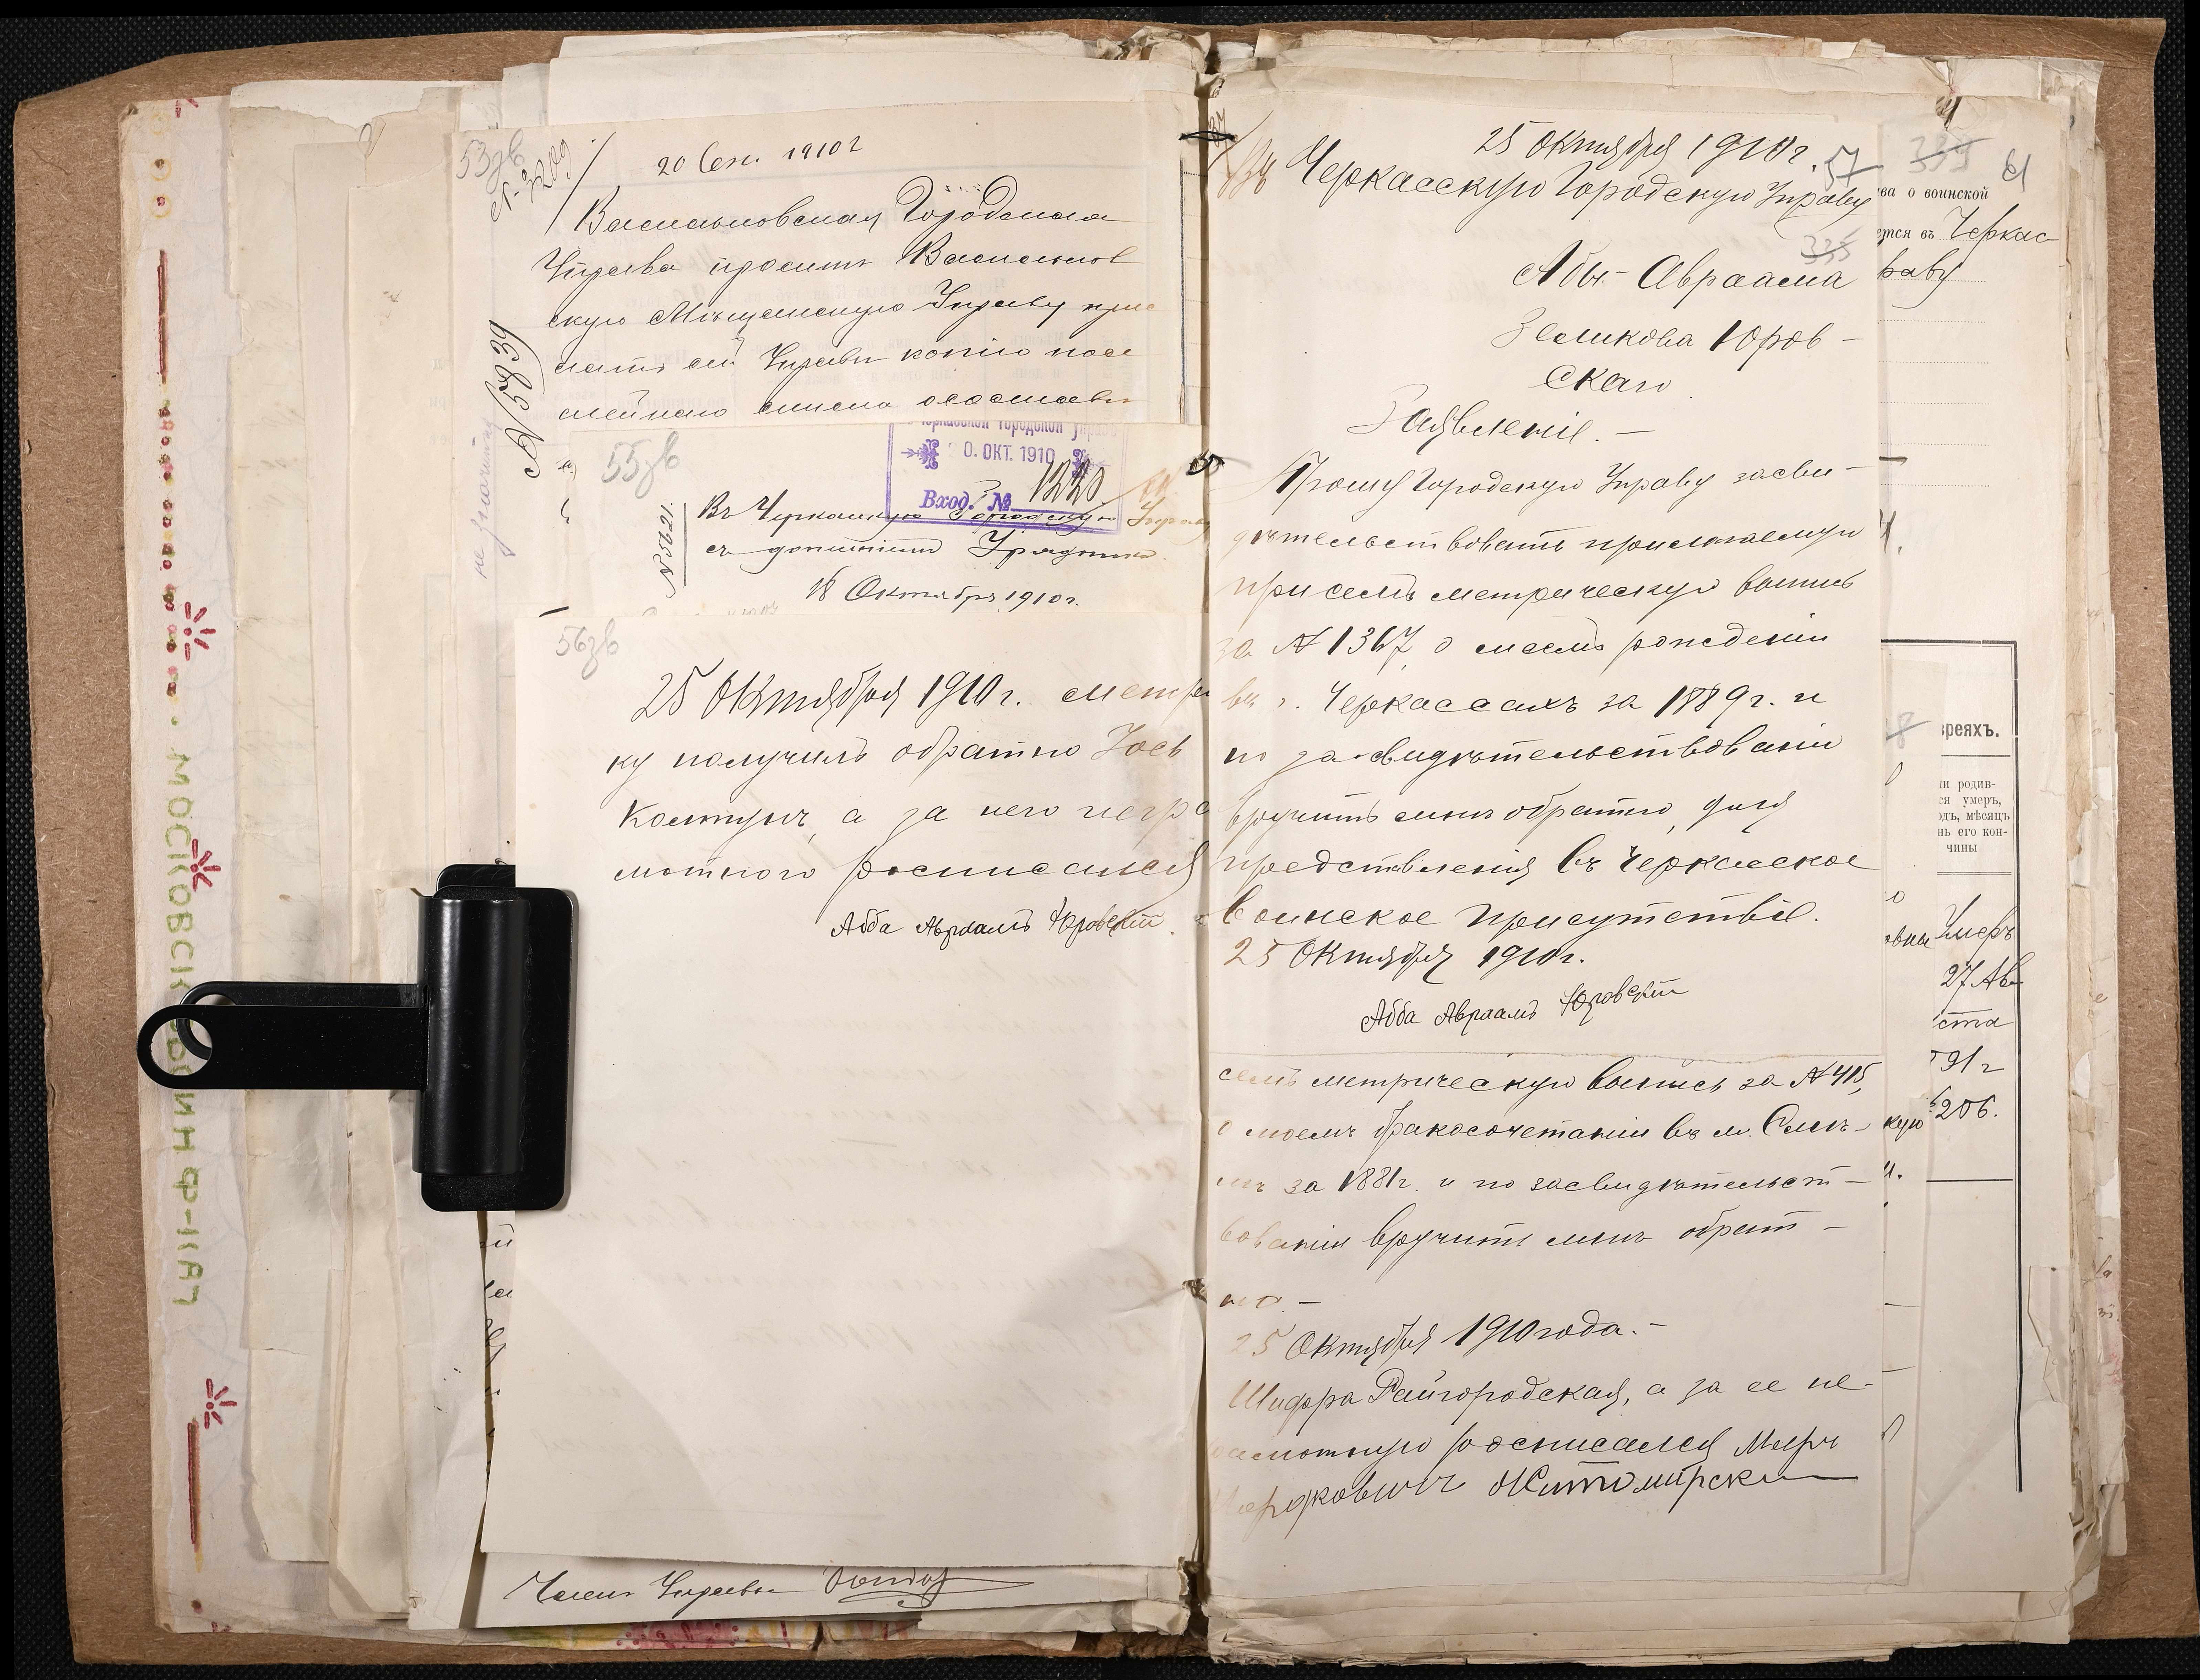 53зв
№ 3209
20 Сен. 1910 г
Васильковская Городская
Управа просить Васильков
скую Мѣщанскую Управу при
слать сей Управѣ копію посе
мейнаго списка о составѣ
№ 5839
55зв
Черкасской Городской Управ
0. ОКТ. 1910
Вход. № 1220
Въ Черкасскую Городскую Управ
№ 5621.
18 Октября 1910 г.
56зв
25 Октября 1910 г. метри
ку получилъ обратно Іось
Костырь, а за него негра
мотного росписался
Абба Авраамъ Юровскій
Членъ Управы
МОСКОВСК
ИН Ф-ІКАТ
25 Октября 1910 г.
57
Въ Черкасскую Городскую Управу
335
Абы-Авраама
Зеликова Юров-
скаго
Заявленіе.-
Прошу Городскую Управу засви-
дѣтельствовать прилагаемую
при семъ метрическую выпись
за № 1367, о моемъ рожденіи
въ г. Черкассахъ за 1889 г. и
по засвидѣтельствованіи
вручить мнѣ обратно, для
представленія въ Черкасское
воинское присутствіе.
25 Октября 1910 г.
Абба Авраамъ Юровскій
семъ метрическую выпись за № 415,
о моемъ бракосочетаніи въ м. Смѣ-
лѣ за 1881 г. и по засвидѣтельст-
вованіи вручить мнѣ обрат-
но.-
25 Октября 1910 года.-
Шифра Райгородская, а за ее не-
грамотную росписался Мееръ
Мордковичъ Житомирскій
339
61
ва о воинской
ется въ Черкас
раву
реяхъ.
ли родив-
ся умеръ,
одъ, мѣсяцъ
нь его кон-
чины
Умеръ
27 Ав
ста
91 г
206.
кую